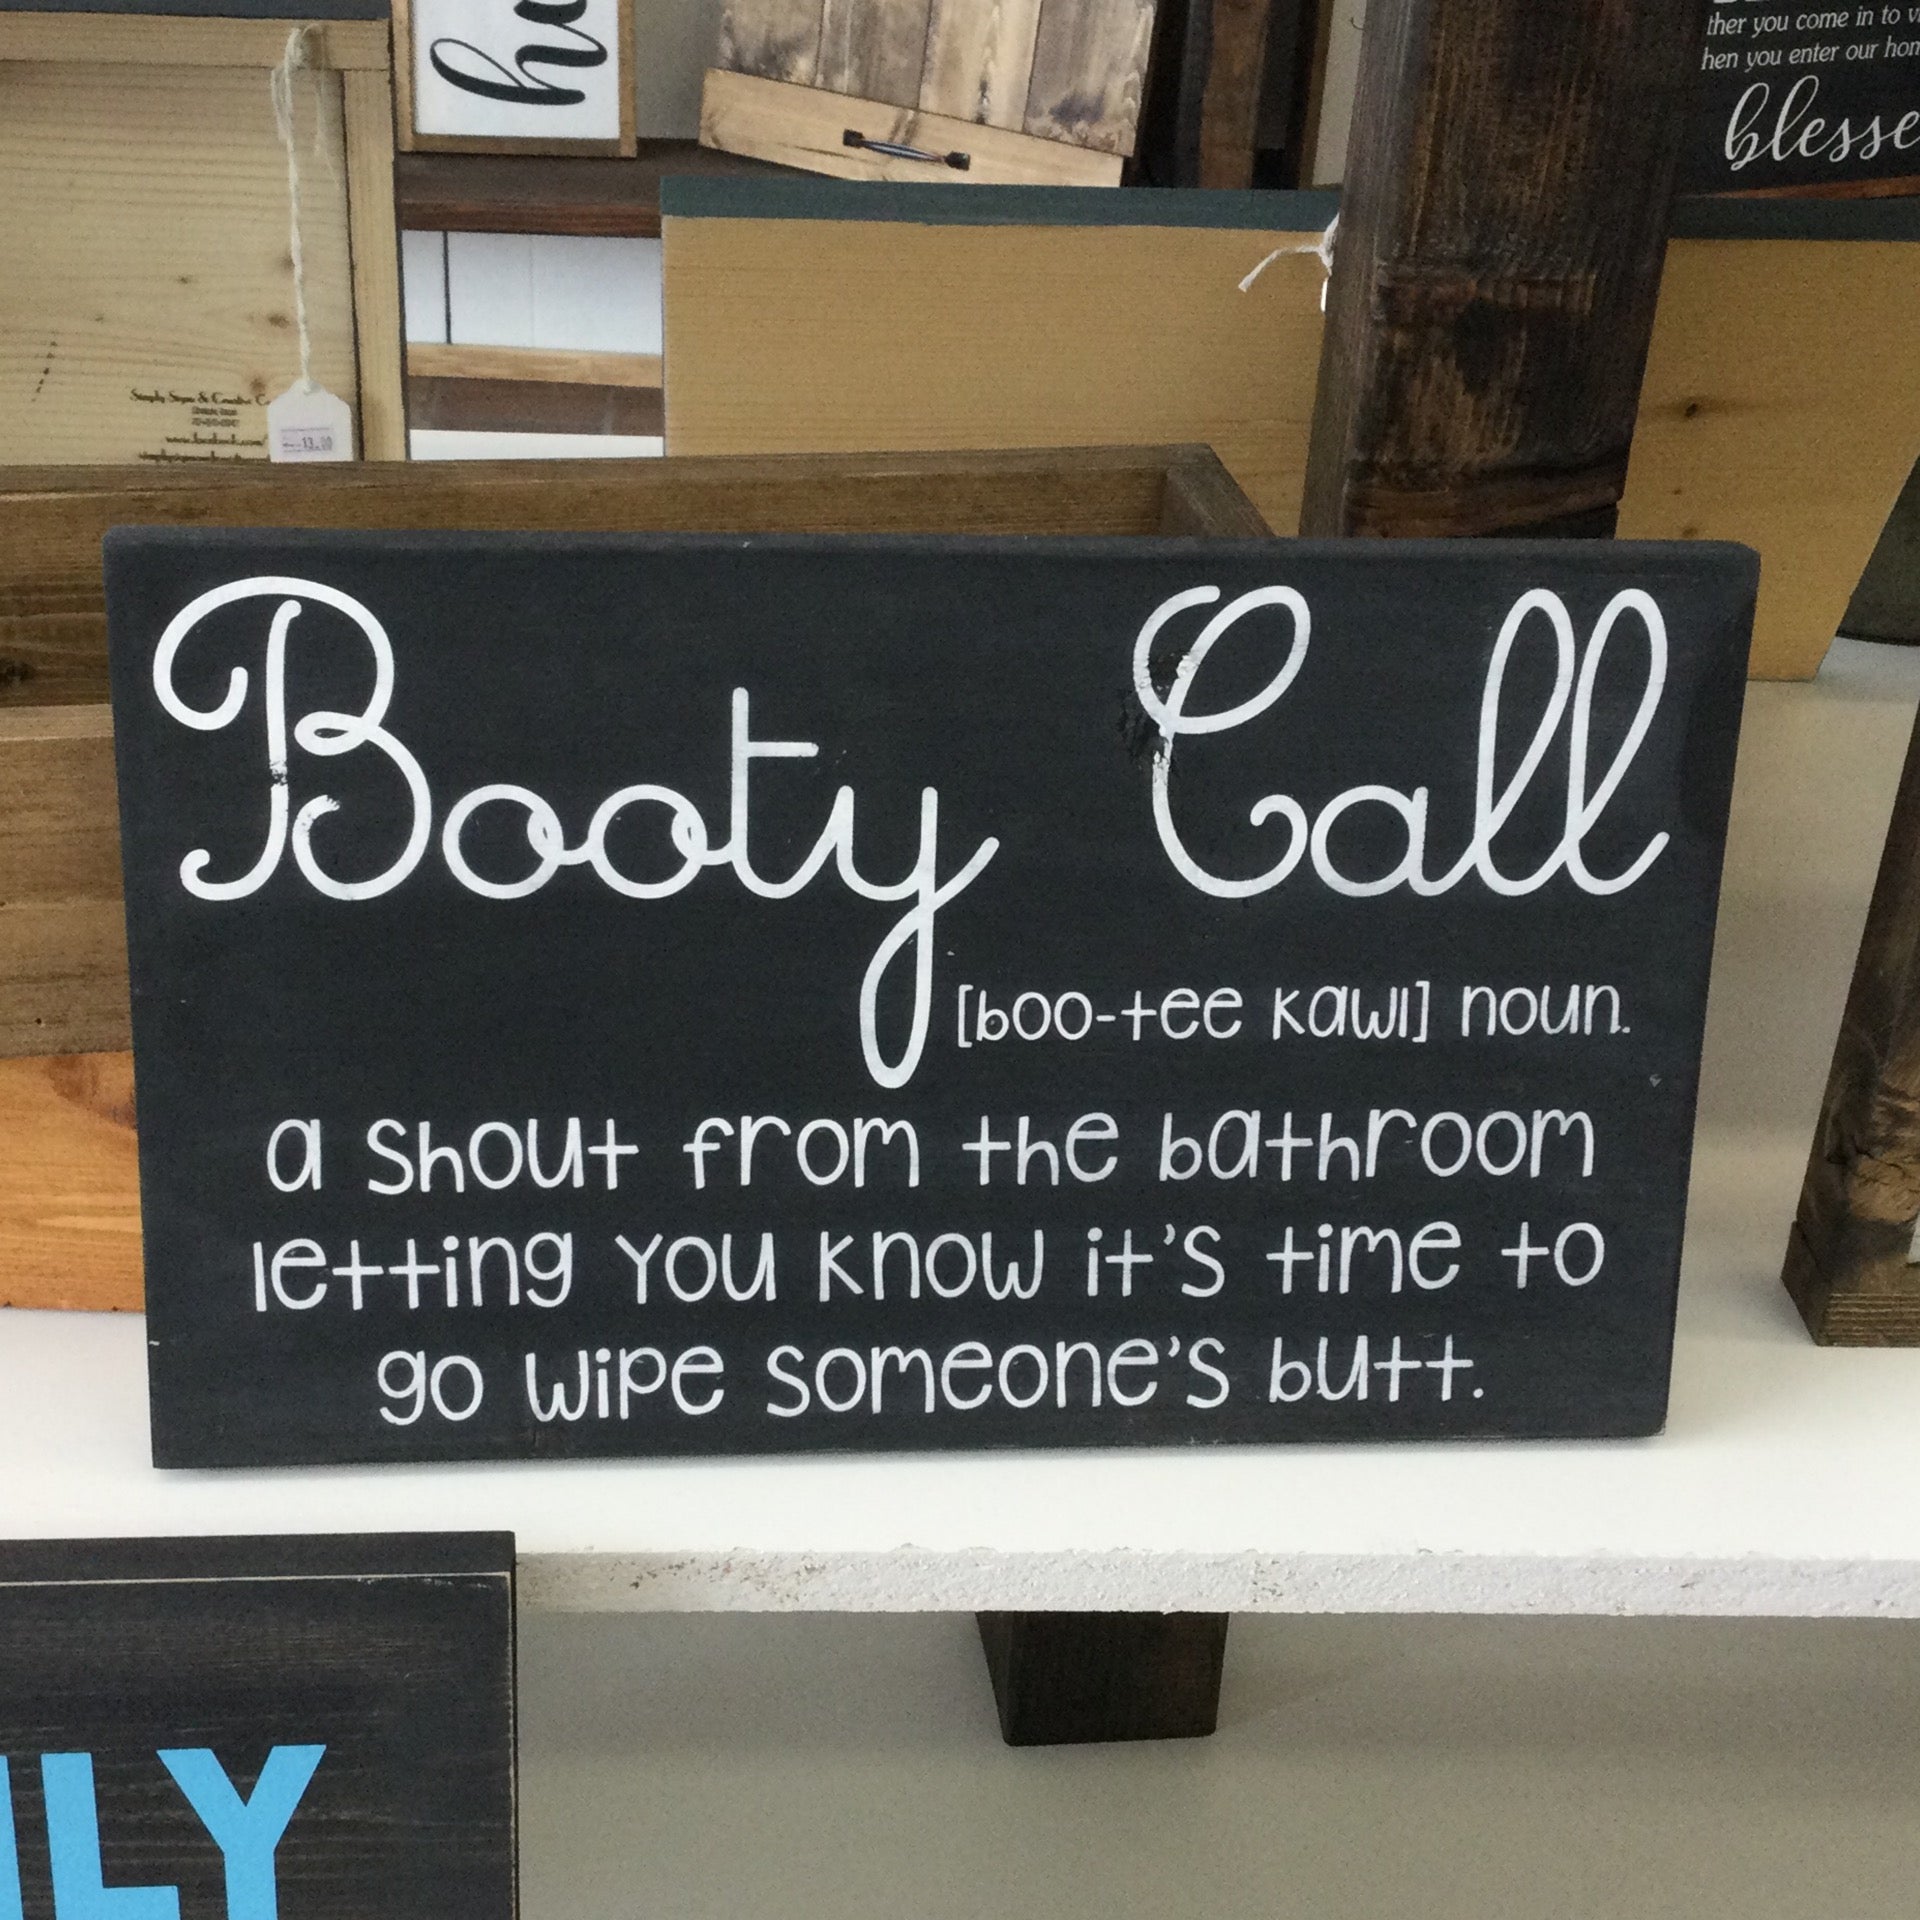 ther you come in to
hen you enter our
Booty Call
[boo-tee kawl] noun.
a shout from the bathroom
letting you know it's time to
go wipe someone's butt.
13.00